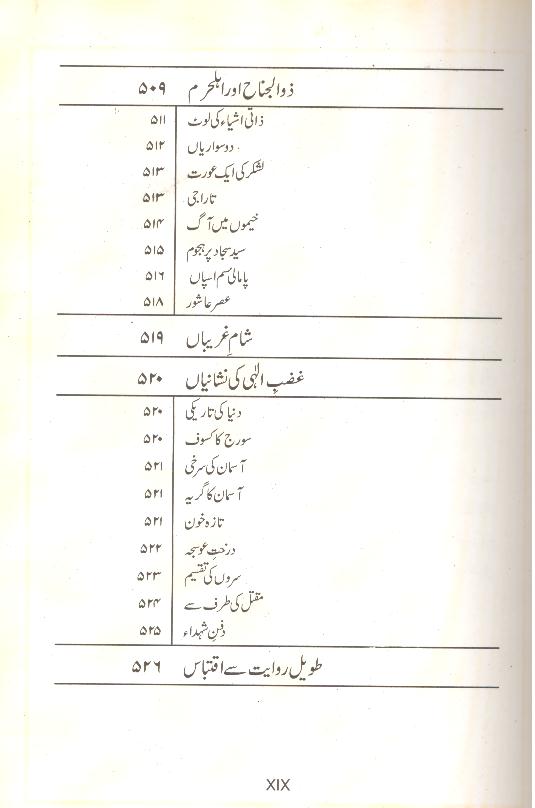 ذوالجناح اور اہلحرم ۵۰۹
ذاتی اشیاء کی لوٹ ۵۱۱
دو سواریاں ۵۱۲
لشکر کی ایک عورت ۵۱۳
تاراجی ۵۱۳
خیموں میں آگ ۵۱۴
سید سجاد پر ہجوم ۵۱۵
پامالی سم اسپاں ۵۱۶
عصر عاشور ۵۱۸
شامِ غریباں ۵۱۹
غضبِ الٰہی کی نشانیاں ۵۲۰
دنیا کی تاریکی ۵۲۰
سورج کا کسوف ۵۲۰
آسمان کی سرخی ۵۲۱
آسمان کا گریہ ۵۲۱
تازہ خون ۵۲۱
درختِ عوسجہ ۵۲۲
سروں کی تقسیم ۵۲۳
مقتل کی طرف سے ۵۲۴
دفنِ شہداء ۵۲۵
طویل روایت سے اقتباس ۵۲۶
XIX